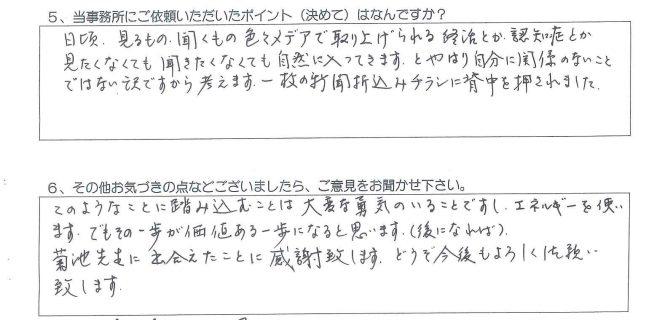 5、当事務所にご依頼いただいたポイント（決めて）はなんですか？
日頃、見るもの、聞くもの色々メデアで取り上げられる終活とか、認知症とか
見たくなくても聞きたくなくても自然に入ってきます。とやはり自分に関係のないこと
ではない訳ですから考えます。一枚の新聞折込みチラシに背中を押されました。
6、その他お気づきの点などございましたら、ご意見をお聞かせ下さい。
このようなことに踏み込むことは大変な勇気のいることですし、エネルギーを使い
ます。でもその一歩が価値ある一歩になると思います。（後になれば）
菊池先生に出会えたことに感謝致します。どうぞ今後もよろしくお願い
致します。